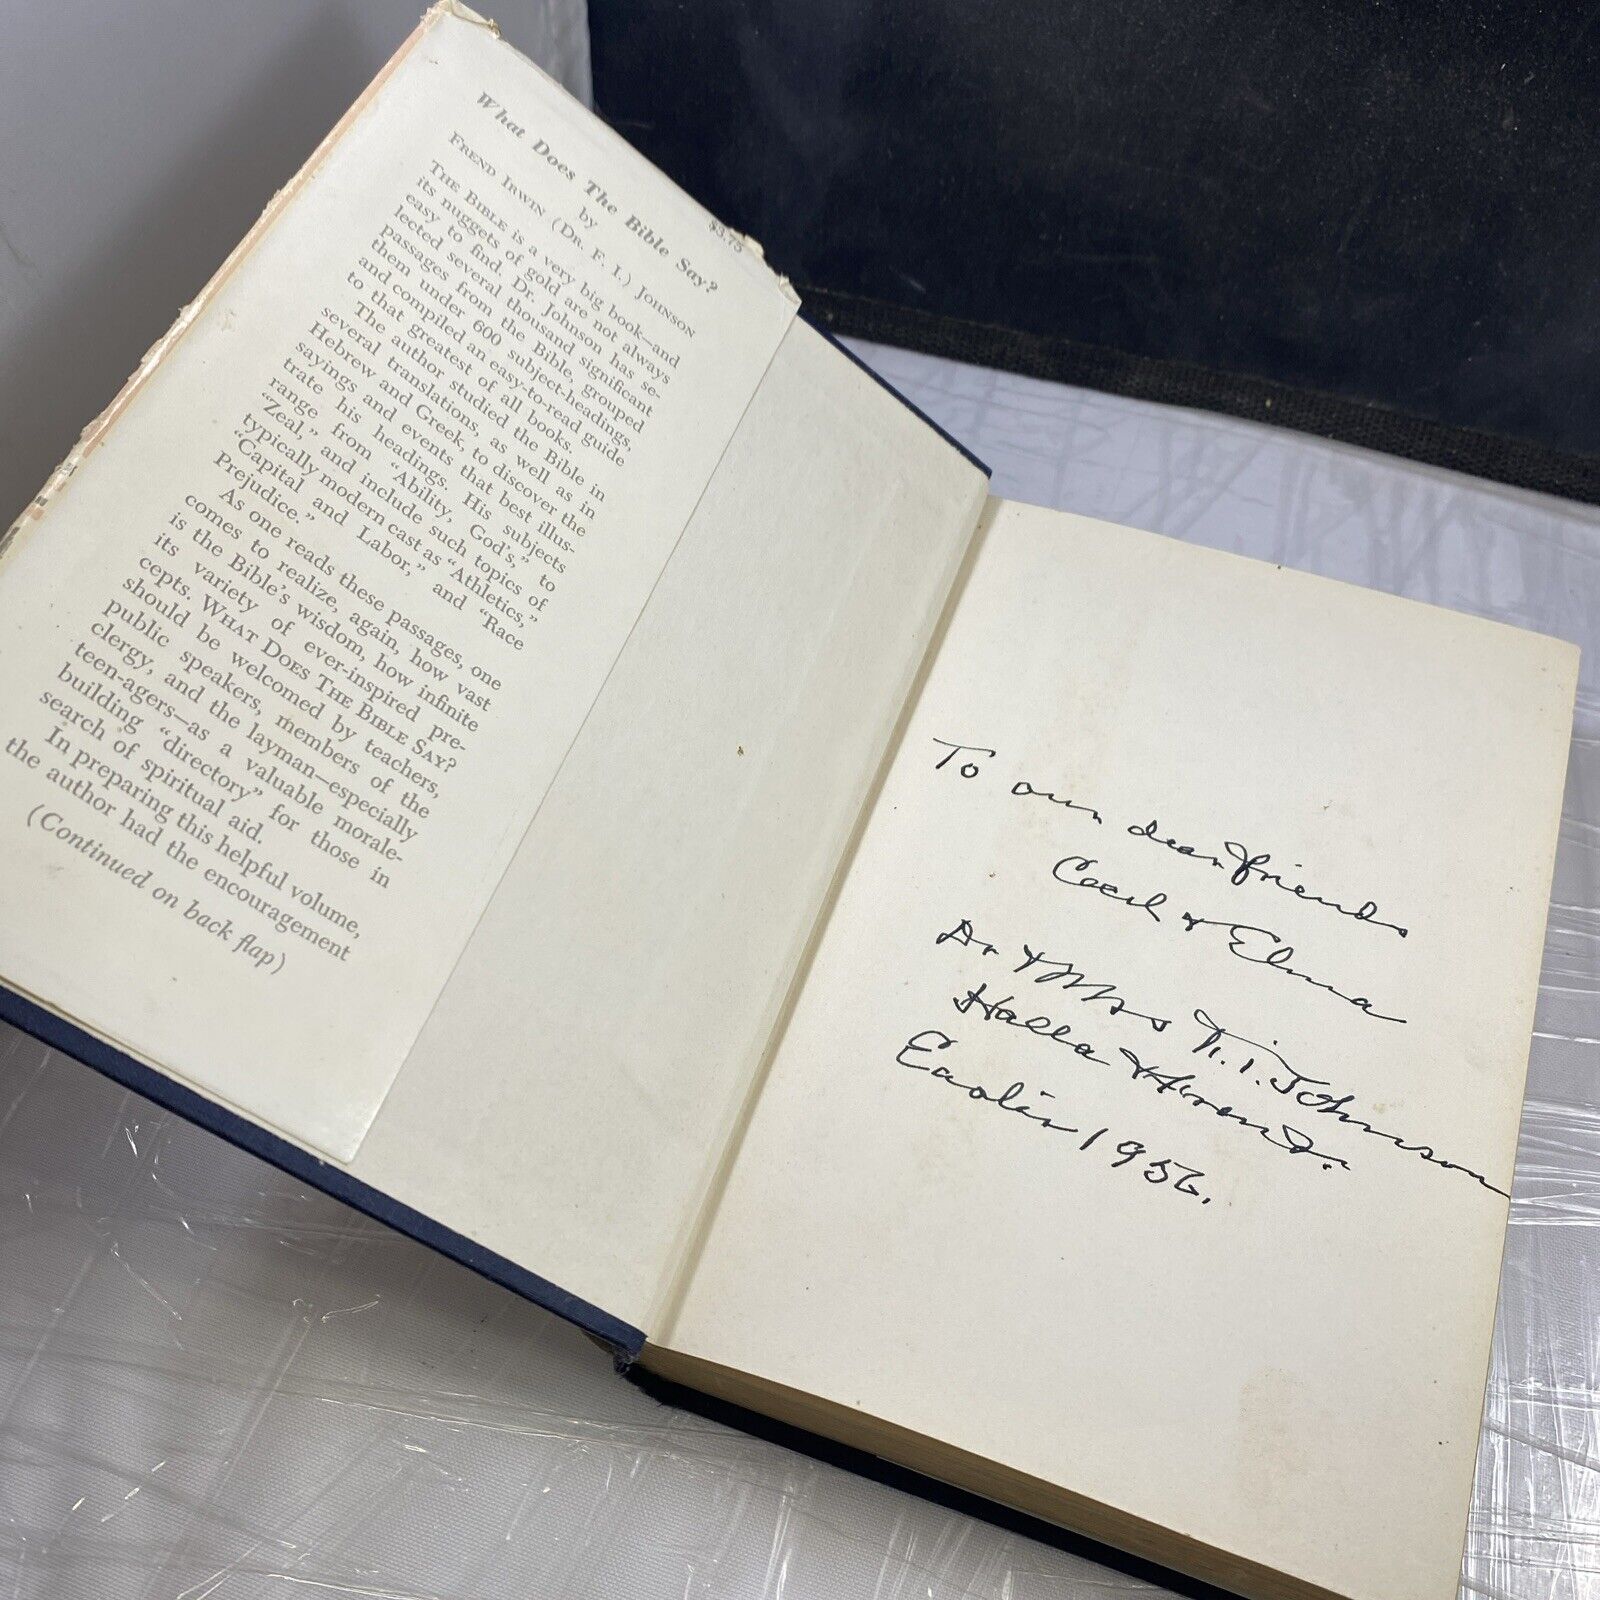 $3.75
What Does The Bible Say?
by
FREND IRWIN (DR. F. I.) JOHNSON
THE BIBLE is a very big book—and
its nuggets of gold are not always
easy to find. Dr. Johnson has se-
lected several thousand significant
passages from the Bible, grouped
them under 600 subject-headings,
and compiled an easy-to-read guide
to that greatest of all books.
The author studied the Bible in
several translations, as well as in
Hebrew and Greek, to discover the
sayings and events that best illus-
trate his headings. His subjects
range from "Ability, God's," to
"Zeal," and include such topics of
typically modern cast as "Athletics,"
"Capital and Labor," and "Race
Prejudice."
As one reads these passages, one
comes to realize, again, how vast
is the Bible's wisdom, how infinite
its variety of ever-inspired pre-
cepts. WHAT DOES THE BIBLE SAY?
should be welcomed by teachers,
public speakers, members of the
clergy, and the layman—especially
teen-agers—as a valuable morale-
building "directory" for those in
search of spiritual aid.
In preparing this helpful volume,
the author had the encouragement
(Continued on back flap)
To our dear friends
Cecil & Elma
Dr & Mrs F. I. Johnson
&
1956.